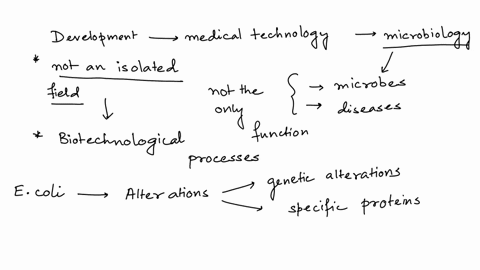 Development → medical technology → microbiology
* not an isolated field
not the only function
→ microbes
→ diseases
* Biotechnological processes
E. coli → Alterations
genetic alterations
specific proteins